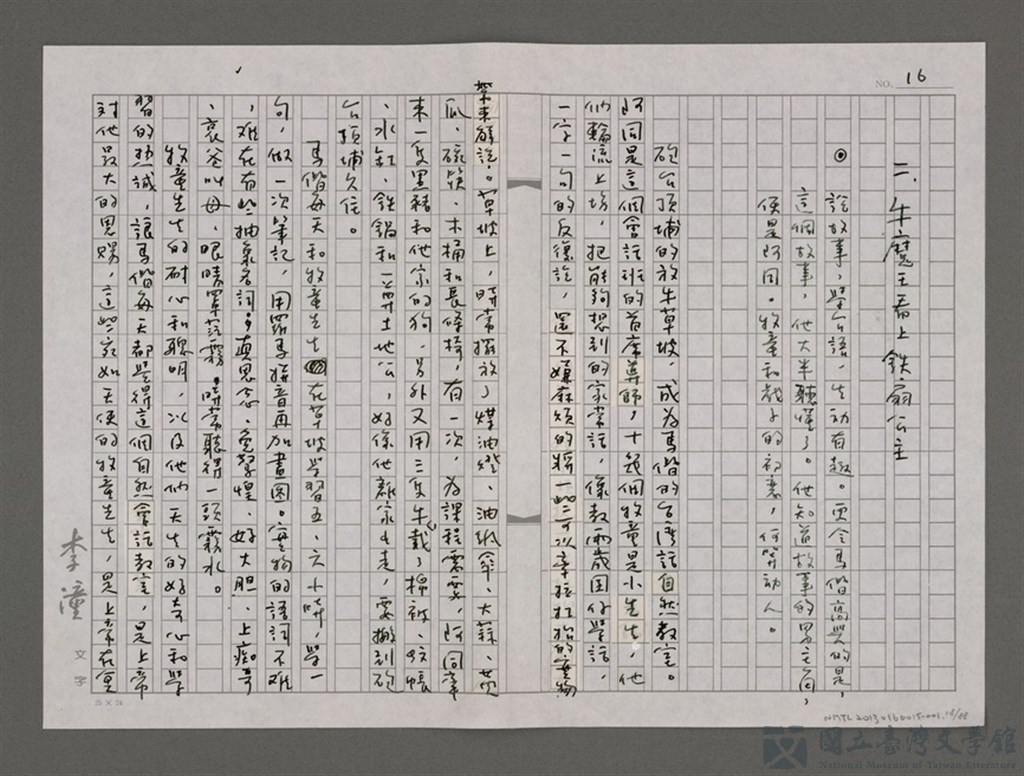 NO. 16
二、牛魔王看上鉄扇公主
◎說故事,學台語,生动有趣。更令馬偕高興的是,
這個故事,他大半聽懂了。他知道故事的男主角,
便是阿同。牧童和戲子的初衷,何等动人。
砲台頂埔的放牛草坡,成为馬偕的台灣話自然教室。
阿同是這個會話班的首席導師,十幾個牧童是小先生,他
們輪流上坊,把能夠想到的家常話,像教兩歲囝仔學話,
一字一句的反復說,還不嫌麻煩的將一些可以牽拉扛抬的實物
帶來解說。草坡上,時常擺放了煤油燈、油紙傘、大蒜、黄
瓜、碗筷、木桶和長條椅,有一次,为課程需要,阿同牽
來一隻黑豬和他家的狗,另外又用三隻牛載了棉被、蚊帳
、水缸、鉄鍋和一尊土地公,好像他離家出走,要搬到砲
台頂埔久住。
馬偕每天和牧童先生在草坡學習五、六小時,學一
句,做一次筆記,用羅馬拼音再加畫圖。實物的語詞不难
,难在有些抽象名詞;真思念、免驚惶、好大胆、上痴哥
、哀爸叫母,眼睛罩茫霧,時常聽得一頭霧水。
牧童先生的耐心和聰明,以及他們天生的好奇心和學
習的热誠,讓馬偕每天都覺得這個自然會話教室,是上帝
對他最大的恩賜,這些宛如天使的牧童先生,是上帝在會
李潼
文字
25×24
NMTL20130160015-001.18/88
國立臺灣文學館
National Museum of Taiwan Literature